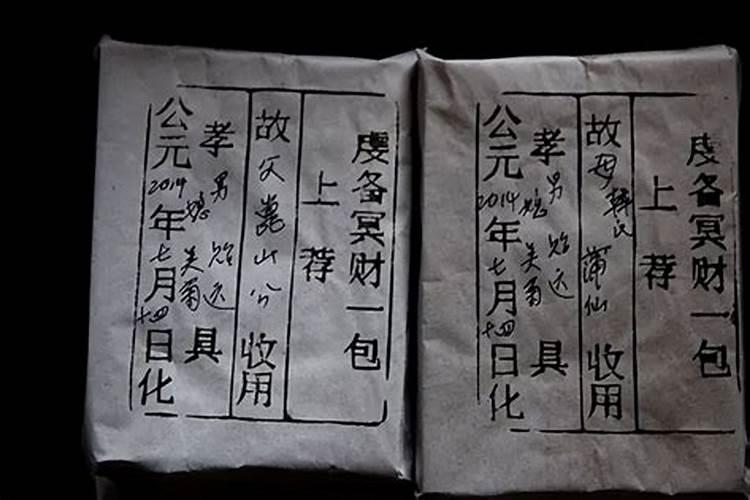 虔备冥财一包
上荐
故父山公收用
孝男贻远
媳美菊具
公元2014年七月十四日化
虔备冥财一包
上荐
故母韩氏蒲仙收用
孝男贻远
媳美菊具
公元2014年七月十四日化